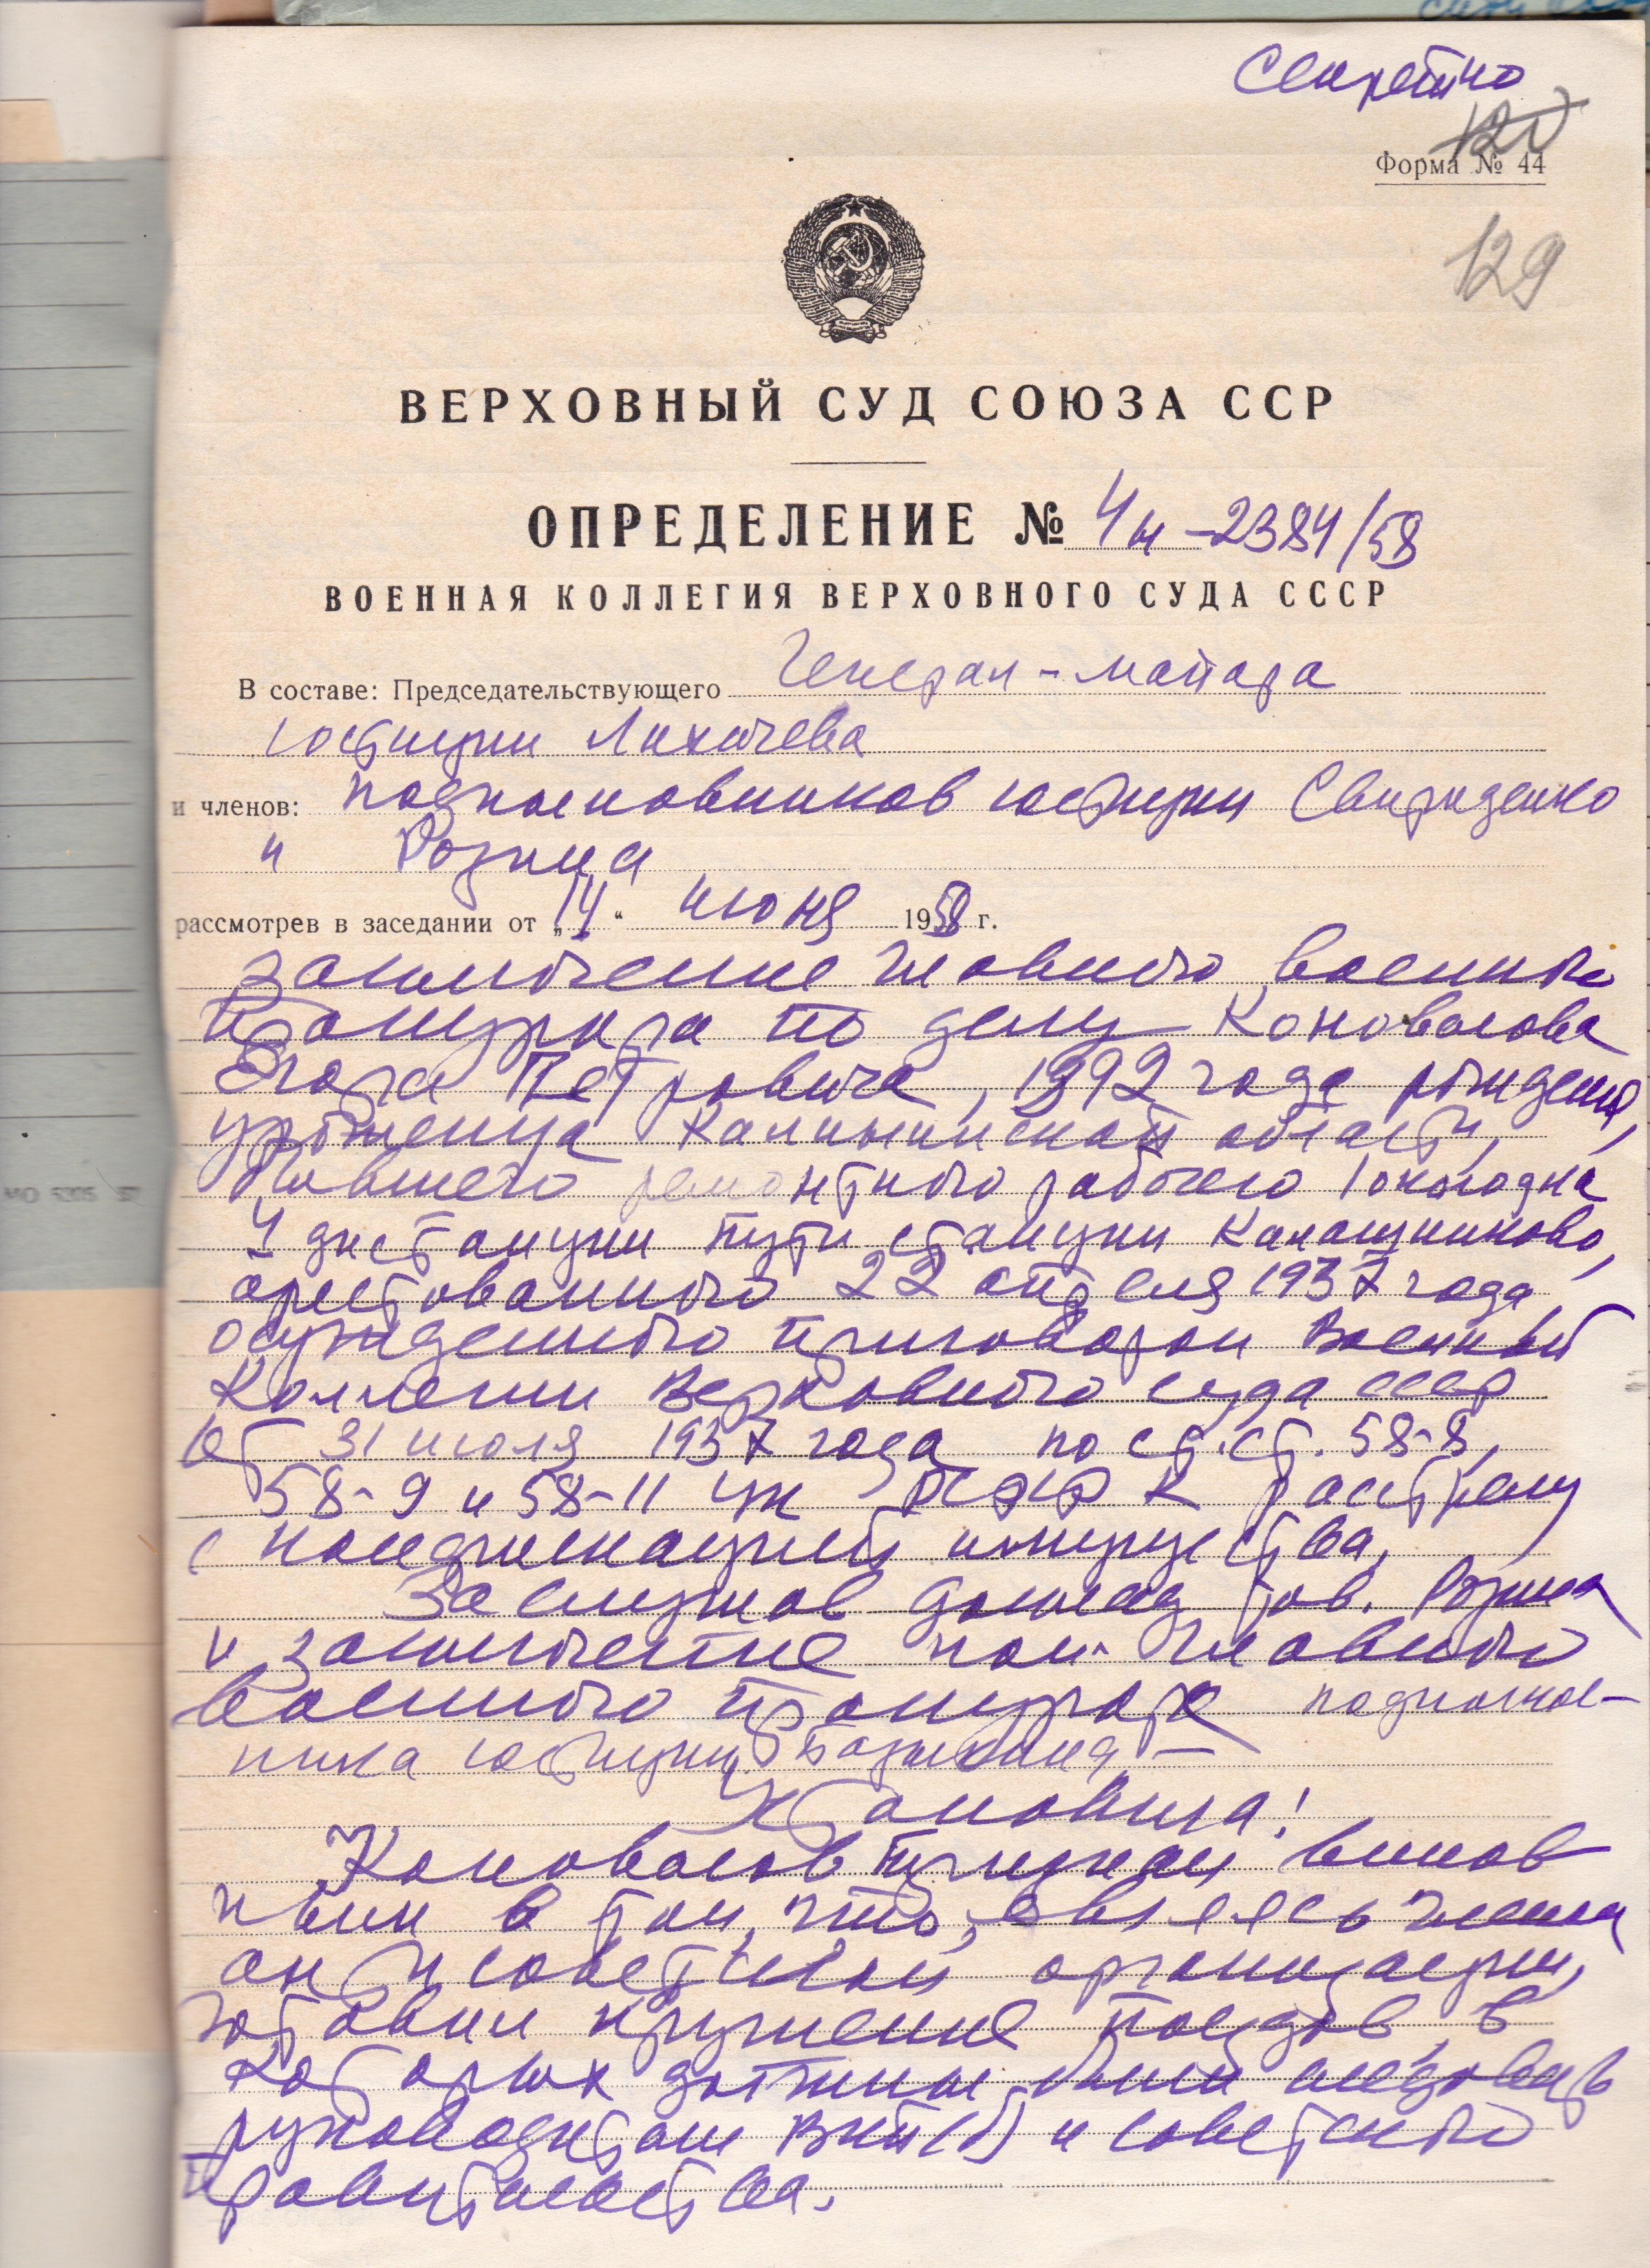 Секретно
120
Форма № 44
129
ВЕРХОВНЫЙ СУД СОЮЗА ССР
ОПРЕДЕЛЕНИЕ № 4н-2384/58
ВОЕННАЯ КОЛЛЕГИЯ ВЕРХОВНОГО СУДА СССР
В составе: Председательствующего Генерал-майора
юстиции Лихачева
и членов: подполковников юстиции Свириденко
и Рознина
рассмотрев в заседании от „14“ июня 1958 г.
заключение Главного военного
прокурора по делу Коновалова
Егора Петровича, 1892 года рождения,
уроженца Калининской области,
бывшего ремонтного рабочего 1 околодка
4 дистанции пути станции Калашниково,
арестованного 22 апреля 1937 года
осужденного приговором Военной
Коллегии Верховного суда СССР
от 31 июля 1937 года по ст.ст. 58-8,
58-9 и 58-11 УК РСФСР к расстрелу
с конфискацией имущества,
Заслушав доклад тов. Рознина
и заключение пом. Главного
Военного прокурора подполков-
ника юстиции
Установила:
Коновалов признан винов
ным в том, что, являясь членом
антисоветской организации,
готовил крушение поездов, в
которых должны были следовать
руководители ВКП(б) и советского
правительства.